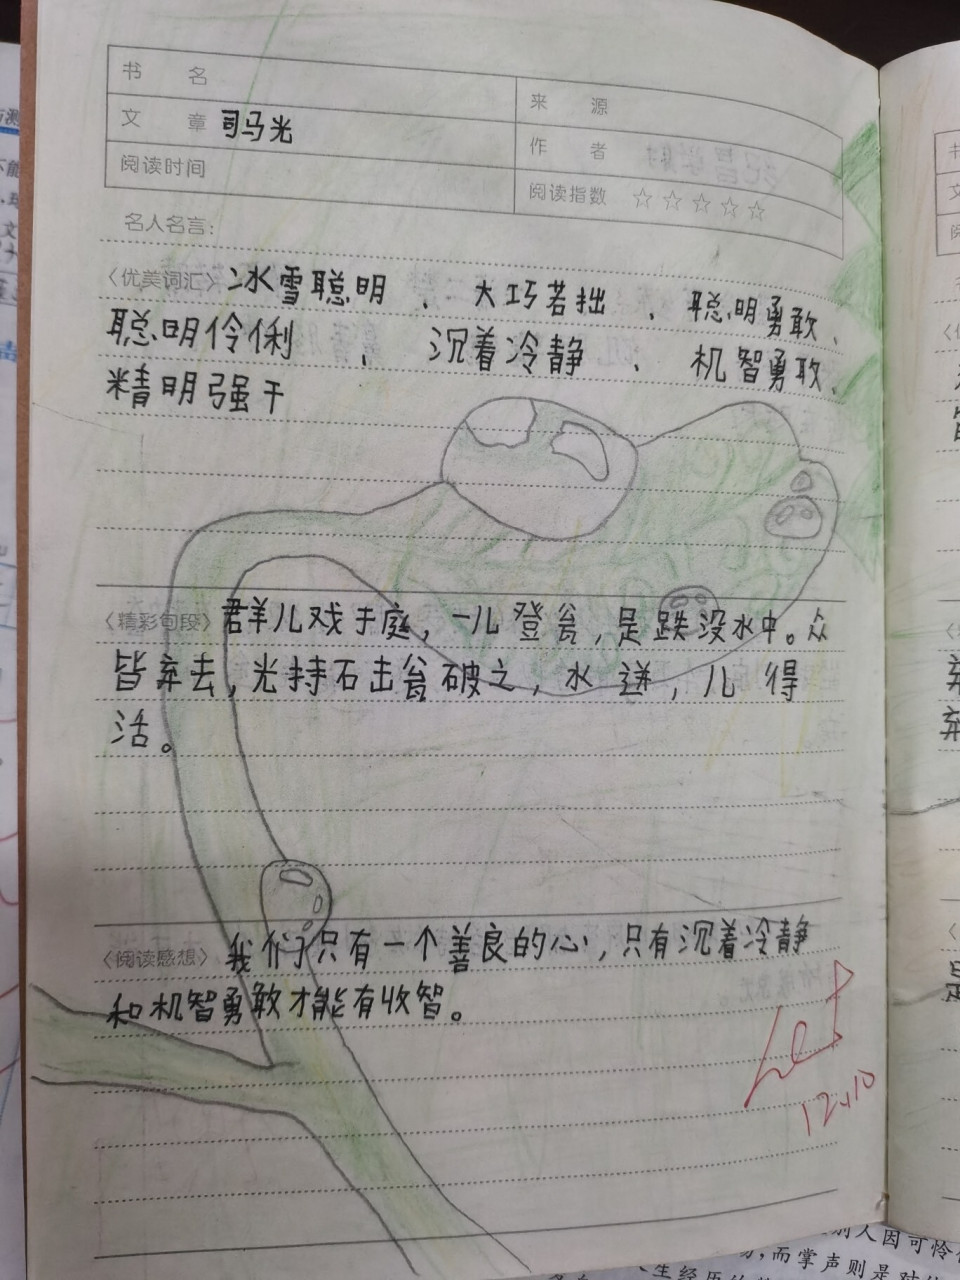 书 名
来 源
文 章 司马光
作 者
阅读时间
阅读指数 ☆☆☆☆☆
名人名言:
〈优美词汇〉冰雪聪明、大巧若拙、聪明勇敢、
聪明伶俐、沉着冷静、机智勇敢、
精明强干
〈精彩句段〉群儿戏于庭,一儿登瓮,足跌没水中。众
皆弃去,光持石击瓮破之,水迸,儿得
活。
〈阅读感想〉我们只有一个善良的心,只有沉着冷静
和机智勇敢才能有收智。
12.10
别人因可怜
,而掌声则是对